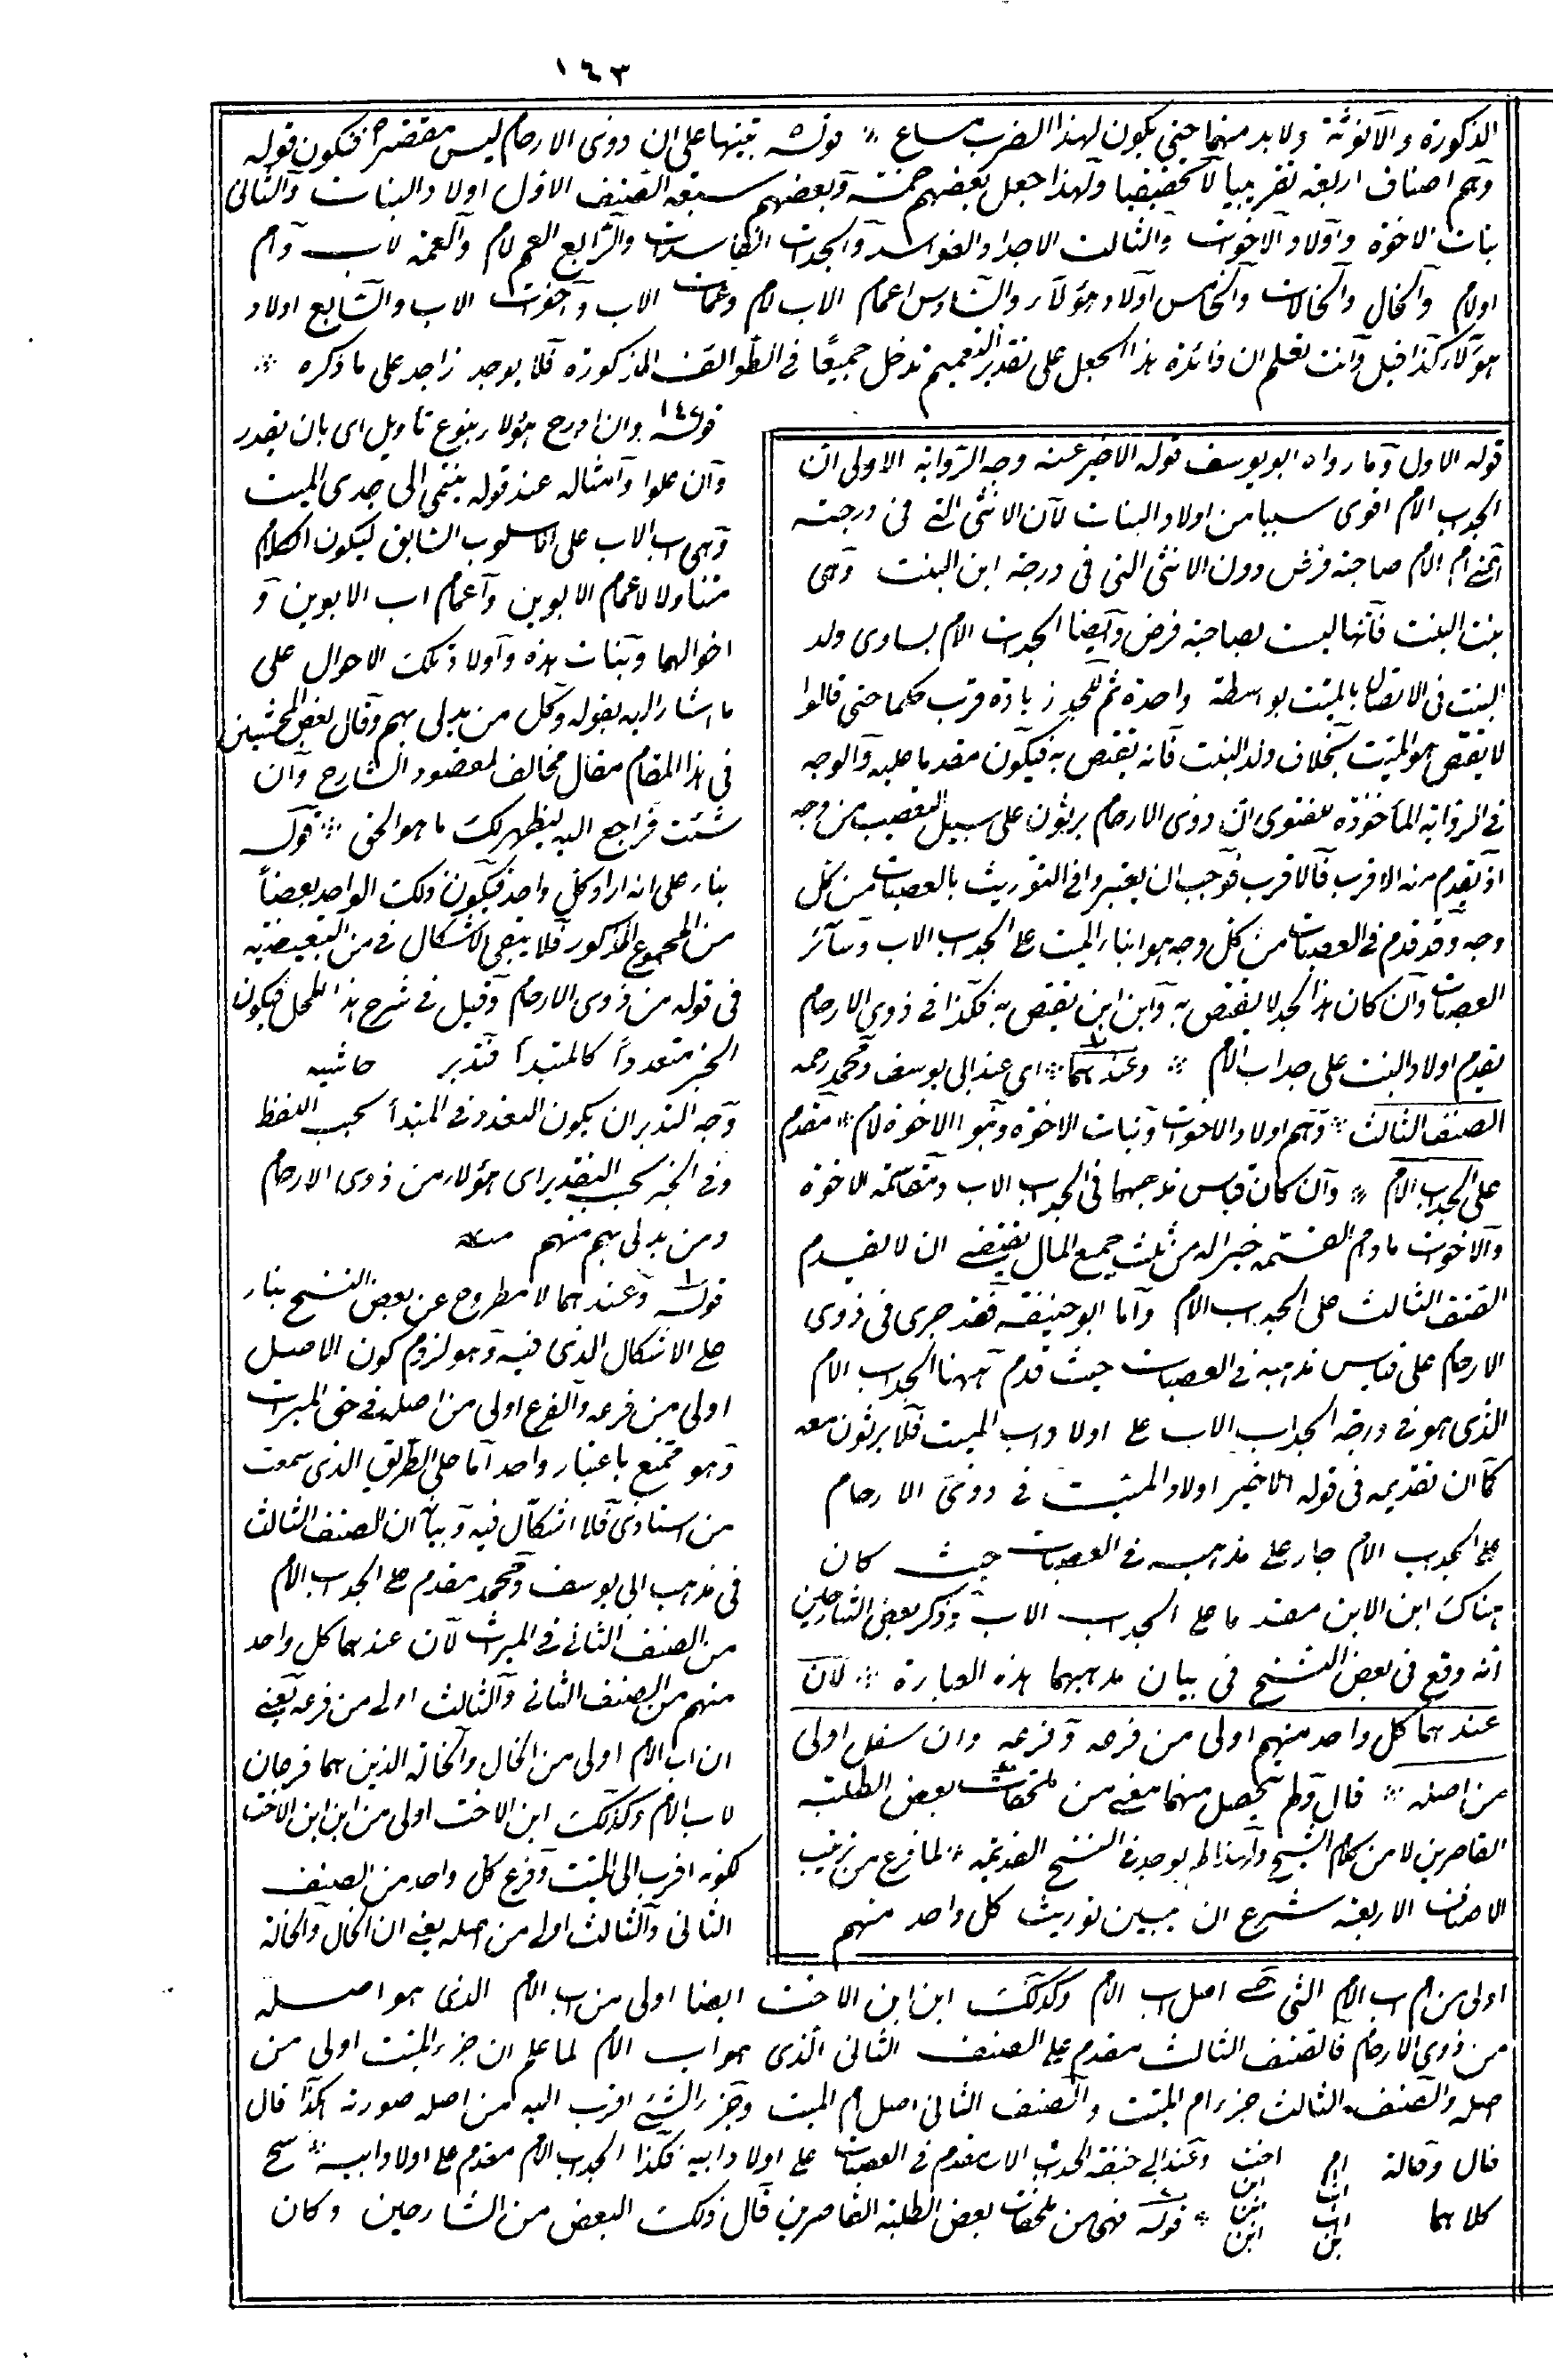 ١٦٣
الذكورة والانوثة ولا بد منهما حتى يكون لهذا الضرب مساغ ؞ قوله تنبيها على ان ذوى الارحام ليس مقتصرا فتكون قوله
وهم اصناف اربعة تقريبيا لا تحقيقيا ولهذا جعل بعضهم خمسة وبعضهم سبعة الصنف الاول اولاد البنات والثانى
بنات الاخوة واولاد الاخوات والثالث الاجداد الفواسد والجدات الفاسدات والرابع العم لام والعمة لاب وام
اولام والخال والخالات والخامس اولاد هؤلاء والسادس اعمام الاب لام وعمات الاب واخوات الاب والسابع اولاد
هؤلاء كذا قيل وانت تعلم ان فائدة هذا الجعل على تقدير التعميم تدخل جميعا فى الطوائف المذكورة فلا يوجد زاجد على ما ذكره ؞
قوله الاول وما رواه ابو يوسف قوله الاخير عنه وجه الرواية الاولى ان
الجد اب الام اقوى سببا من اولاد البنات لان الانثى التى فى درجته
اعنى ام الام صاحبة فرض دون الانثى التى فى درجة ابن البنت وهى
بنت البنت فانها ليست بصاحبة فرض وايضا الجد اب الام يساوى ولد
البنت فى الاتصال بالميت بواسطة واحدة ثم للجد زيادة قرب حكما حتى قالوا
لا يقتص هو بالميت بخلاف ولد البنت فانه يقتص به فيكون مقدما عليه والوجه
فى الرواية المأخوذة للفتوى ان ذوى الارحام يرثون على سبيل التعصيب من وجه
اذ يقدم منه الاقرب فالاقرب فوجب ان يعتبروا فى التوريث بالعصبات من كل
وجه وقد قدم فى العصبات من كل وجه هو ابناء الميت على الجد اب الاب وسائر
العصبات وان كان هذا الجد لا يقتص به وابن ابن يقتص به فكذا فى ذوى الارحام
يقدم اولاد البنت على جد اب الام ؞ وعندهما ؞ اى عند ابى يوسف ومحمد رحمه
الصنف الثالث ؞ وهم اولاد الاخوات وبنات الاخوة وبنوا الاخوة لام ؞ مقدم
على الجد اب الام ؞ وان كان قياس مذهبهما فى الجد اب الاب ومقاسمة الاخوة
والاخوات ما دام القسمة خيرا له من ثلث جميع المال يقتضى ان لا يقدم
الصنف الثالث على الجد اب الام واما ابو حنيفة فقد جرى فى ذوى
الارحام على قياس مذهبه فى العصبات حيث قدم ههنا الجد اب الام
الذى هو فى درجة الجد اب الاب على اولاد اب الميت فلا يرثون معه
كما ان تقديمه فى قوله الاخير اولاد الميت فى ذوى الارحام
على الجد اب الام جار على مذهبه فى العصبات حيث كان
هناك ابن الابن مقدما على الجد اب الاب وذكر بعض الشارحين
انه وقع فى بعض النسخ فى بيان مذهبهما هذه العبارة ؞ لان
عندهما كل واحد منهم اولى من فرعه وفرعه وان سفل اولى
من اصله ؞ قال ولم يحصل منهما معنى من ملحقات بعض الطلبة
القاصرين لا من كلام الشيخ واذا لم يوجد فى النسخ القديمة ؞ لما فرغ من ترتيب
الاصناف الاربعة شرع ان يبين توريث كل واحد منهم
قوله وان ادرج هؤلاء بنوع تأويل اى بان يقدر
وان علوا وامثاله عند قوله ينتمى الى جدى الميت
وهى اب الاب على الاسلوب السابق ليكون الكلام
متناولا لاعمام الابوين واعمام اب الابوين و
اخوالهما وبنات هذه واولاد تلك الاحوال على
ما اشار اليه بقوله وكل من يدلى بهم وقال بعض المحشين
فى هذا المقام مقال مخالف لمقصود الشارح وان
شئت فراجع اليه ليظهر لك ما هو الحق ؞ قوله
بناء على انه اراد كل واحد فيكون ذلك الواحد بعضا
من المجموع المذكور فلا يبقى الاشكال فى من التبعيضية
فى قوله من ذوى الارحام وقيل فى شرح هذا المحل فيكون
الخبر متعددا كالمبتدأ فتدبر حاشيه
وجه التدبر ان يكون التعدد فى المبتدأ بحسب اللفظ
وفى الخبر بحسب التقدير اى هؤلاء من ذوى الارحام
ومن يدلى بهم منهم منه
قوله وعندهما لا مطروح عن بعض النسخ بناء
على الاشكال الذى فيه وهو لزوم كون الاصل
اولى من فرعه والفرع اولى من اصله فى حق الميراث
وهو ممتنع باعتبار واحد اما على الطريق الذى سمعت
من استاذى فلا اشكال فيه وبيانه ان الصنف الثالث
فى مذهب ابى يوسف ومحمد مقدم على الجد اب الام
من الصنف الثانى فى الميراث لان عندهما كل واحد
منهم من الصنف الثانى والثالث اولى من فرعه يعنى
ان اب الام اولى من الخال والخالة الذين هما فرعان
لاب الام وكذلك ابن الاخت اولى من ابن ابن الاخت
لكونه اقرب الى الميت وفرع كل واحد من الصنف
الثانى والثالث اولى من اصله يعنى ان الخال والخالة
اولى من ام اب الام التى هى اصل اب الام وكذلك ابن ابن الاخت ايضا اولى من اب الام الذى هو اصله
من ذوى الارحام فالصنف الثالث مقدم على الصنف الثانى الذى هو اب الام لما علم ان جزء الميت اولى من
اصله والصنف الثالث جزء ام الميت والصنف الثانى اصل ام الميت وجزء الشئ اقرب اليه من اصله صورته هكذا قال
خال وخالة ام اخت وعند ابى حنيفة الجد اب الاب مقدم فى العصبات على اولاد ابيه فكذا الجد اب الام مقدم على اولاد ابيه ؞
كلاهما اب ابن ؞ قوله فهى من ملحقات بعض الطلبة القاصرين قال ذلك البعض من الشارحين وكان